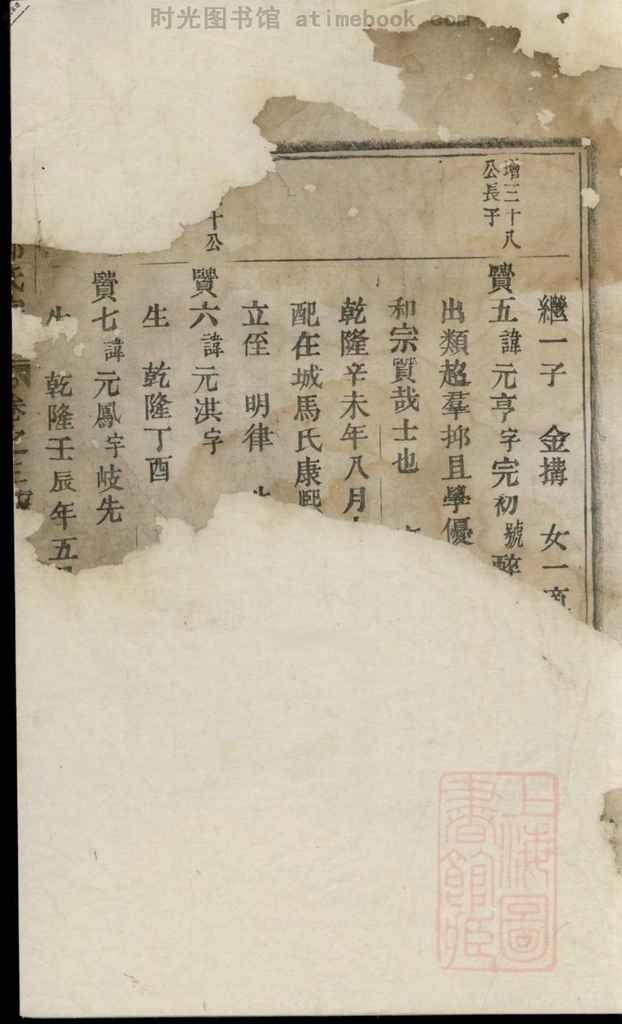 时光图书馆 atimebook.com
增三十八
公長子
繼一子 金搆 女一
贇五諱元亨字完初號
出類超羣抑且學優
和宗質哉士也
乾隆辛未年八月
配在城馬氏康熙
立侄 明律
十公
贇六諱元洪字
生 乾隆丁酉
贇七諱元鳳字岐先
生 乾隆壬辰年五
卷之三
上海圖
書館藏